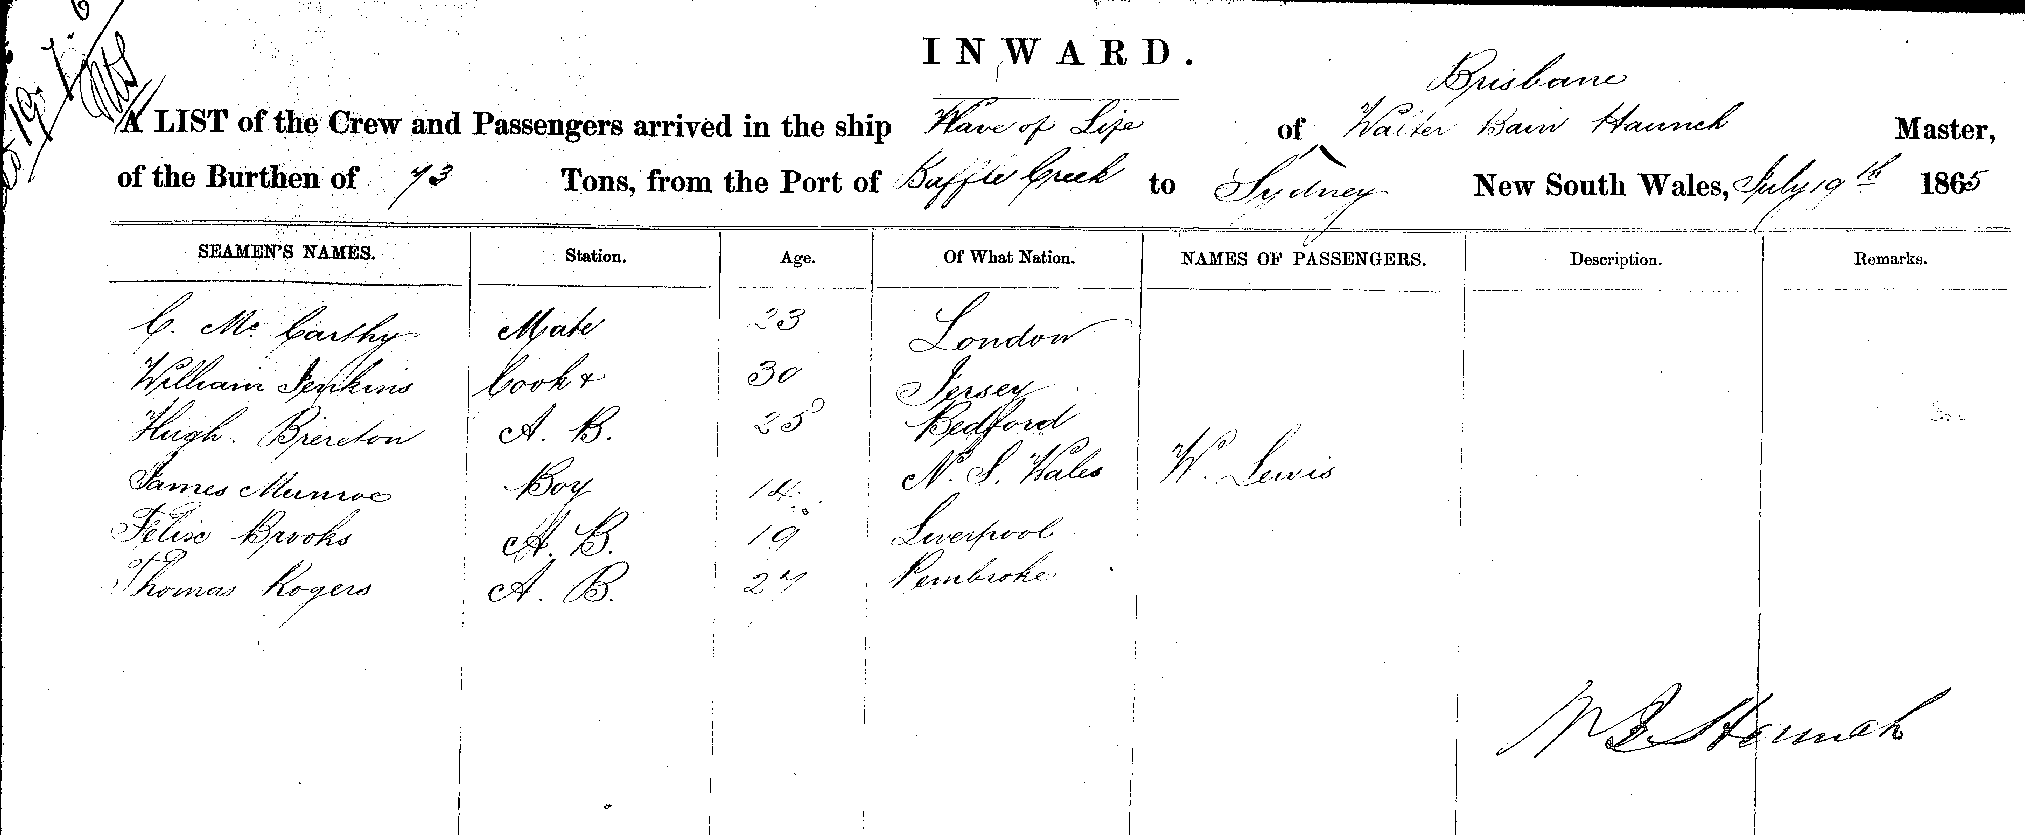 INWARD.
Brisbane
A LIST of the Crew and Passengers arrived in the ship Wave of Life of Walter Bain Hannah Master,
of the Burthen of 73 Tons, from the Port of Baffle Creek to Sydney New South Wales, July 19th 1865
SEAMEN'S NAMES. Station. Age. Of What Nation. NAMES OF PASSENGERS. Description. Remarks.
C. McCarthy Mate 23 London
William Jenkins Cook + 30 Jersey
Hugh. Brereton A. B. 25 Bedford
James Munroe Boy 14 N. S. Wales W. Lewis
Felix Brooks A. B. 19 Liverpool
Thomas Rogers A. B. 27 Pembroke
W B Hannah